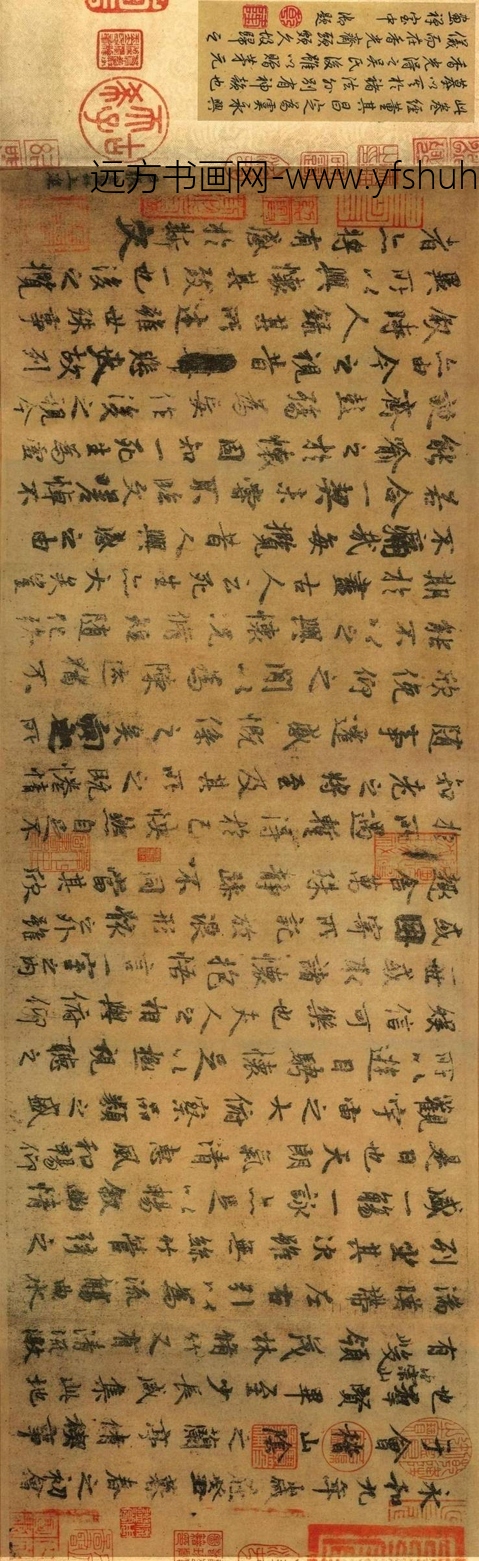 永和九年歲在癸丑暮春之初會
于會稽山陰之蘭亭脩稧事
也群賢畢至少長咸集此地
有崇山峻領茂林脩竹又有清流激
湍暎帶左右引以為流觴曲水
列坐其次雖無絲竹管弦之
盛一觴一詠亦足以暢敘幽情
是日也天朗氣清惠風和暢仰
觀宇宙之大俯察品類之盛
所以遊目騁懷足以極視聽之
娛信可樂也夫人之相與俯仰
一世或取諸懷抱悟言一室之內
或因寄所託放浪形骸之外雖
趣舍萬殊靜躁不同當其欣
於所遇暫得於己怏然自足不
知老之將至及其所之既惓情
隨事遷感慨係之矣向之所
欣俛仰之閒以為陳迹猶不
能不以之興懷況脩短隨化終
期於盡古人云死生亦大矣豈
不痛哉每攬昔人興感之由
若合一契未嘗不臨文嗟悼不
能喻之於懷固知一死生為虛
誕齊彭殤為妄作後之視今
亦由今之視昔悲夫故列
敘時人錄其所述雖世殊事
異所以興懷其致一也後之攬
者亦將有感於斯文
此卷經董其昌定為虞永興
远方书画网-www.yfshuh